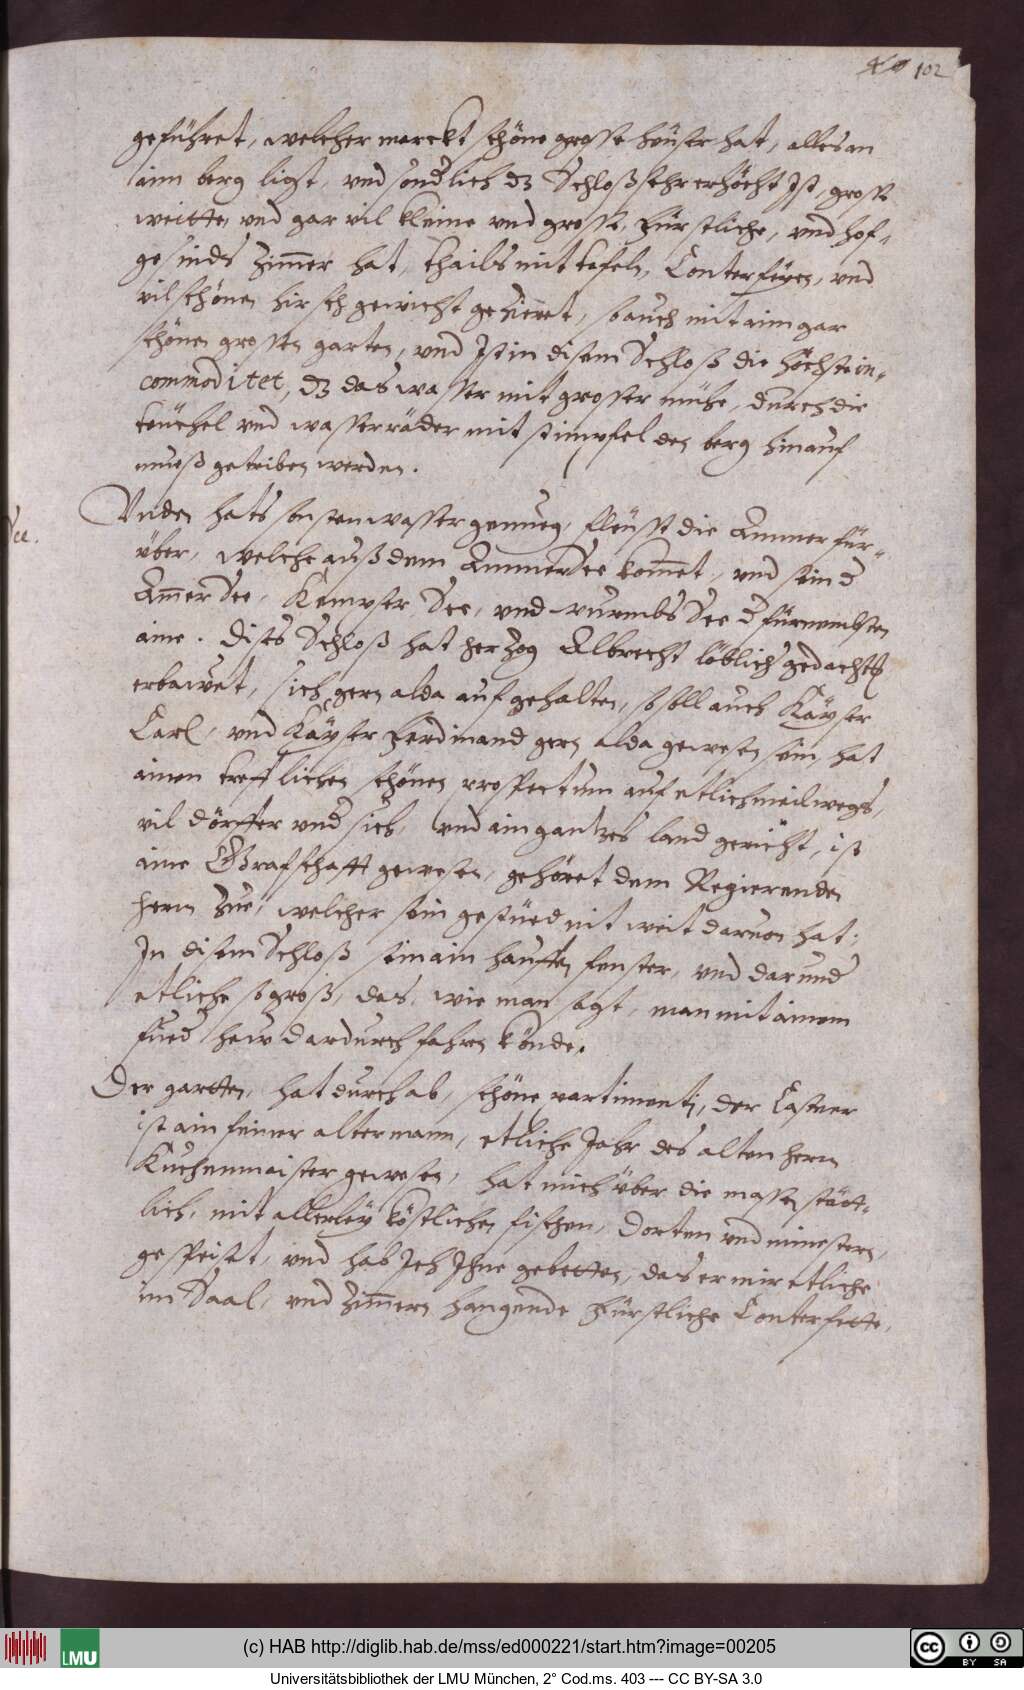 102
geführet, welcher marckt schöne grosse heuser hat, alles an
aim berg ligt, vnd sonderlich dz Schloß sehr erhöcht Ist, grosse
weitte, vnd gar vil kleine vnd grosse, Fürstliche, vnd hof-
gesinds Zimmer hat, thails mit tafeln, Conterfeyen, vnd
vil schönen hirschgewicht gezieret, so auch mit aim gar
schönen grossen garten, vnd Ist in disem Schloß die höchste in-
commoditet, dz das wasser mit grosser mühe, durch die
teuchel vnd wasserräder mit stimpfel den berg hinauf
mueß getriben werden.
Vnden hats sonsten wasser genueg, fleusst die Ammer für-
über, welche auß dem AmmerSee kommet, vnd seind
See.
AmmerSee, Kempser See, vnd wurmbs See d fürnembsten
aine. Dises Schloß hat herzog Albrecht löblicher gedachtnuß
erbawet, sich gern alda aufgehalten, so soll auch Kayser
Carl, vnd Kayser Ferdinand gern alda gewesen sein, hat
ainen trefflichen schönen prospectum auf etlich meilwegs,
vil dörffer vnder sich, vnd ain gantzes land gericht, ist
aine Grafschafft gewesen, gehöret dem Regierenden
herrn Zue, welcher sein gestüed nit weit daruon hat.
In disem Schloß sein ain hauffen fenster, vnd darunder
etliche so groß, das, wie man sagt, man mit ainem
fueder hew dardurch fahren könde.
Der gartten, hat durchab, schöne partimenti, der Castner
ist ain feiner alter mann, etliche Jahr des alten herrn
Kuchenmaister gewesen, hat mich über die massen stätt-
lich, mit allerley köstlichen fischen, dorten vnd minestern,
gespeiset, vnd hab Ich Ihne gebetten, das er mir etliche
im Saal, vnd Zimmern hangende Fürstliche Conterfette,
LMU
(c) HAB http://diglib.hab.de/mss/ed000221/start.htm?image=00205
cc BY SA
Universitätsbibliothek der LMU München, 2° Cod.ms. 403 --- CC BY-SA 3.0